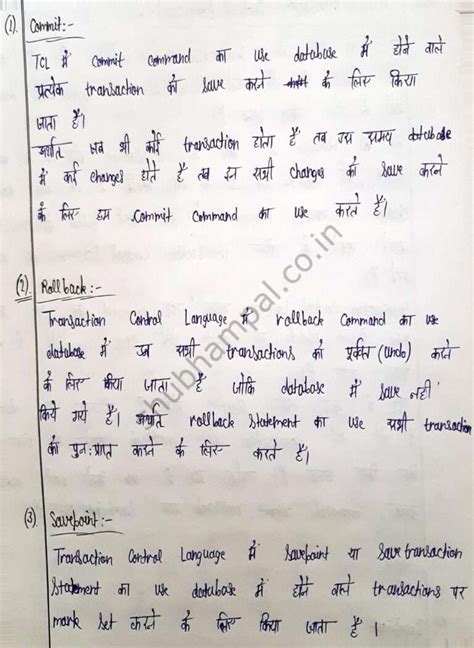 (1). Commit:-
TCL में Commit command का use database में होने वाले
प्रत्येक transaction को save करने के लिए किया
जाता है।
अर्थात जब भी कोई transaction होता है तब उस समय database
में कई changes होते है तब इन सभी changes को save करने
के लिए हम Commit Command का use करते है।
(2). Rollback:-
Transaction Control Language में rollback Command का use
database में उन सभी transactions को पूर्ववत (undo) करने
के लिए किया जाता है जोकि database में save नहीं
किये गये है। अर्थात rollback statement का use सभी transaction
को पुनः प्राप्त करने के लिए करते है।
(3). Savepoint:-
Transaction Control Language में Savepoint या Save transaction
Statement का use database में होने वाले transactions पर
mark set करने के लिए किया जाता है ।
shubhampal.co.in